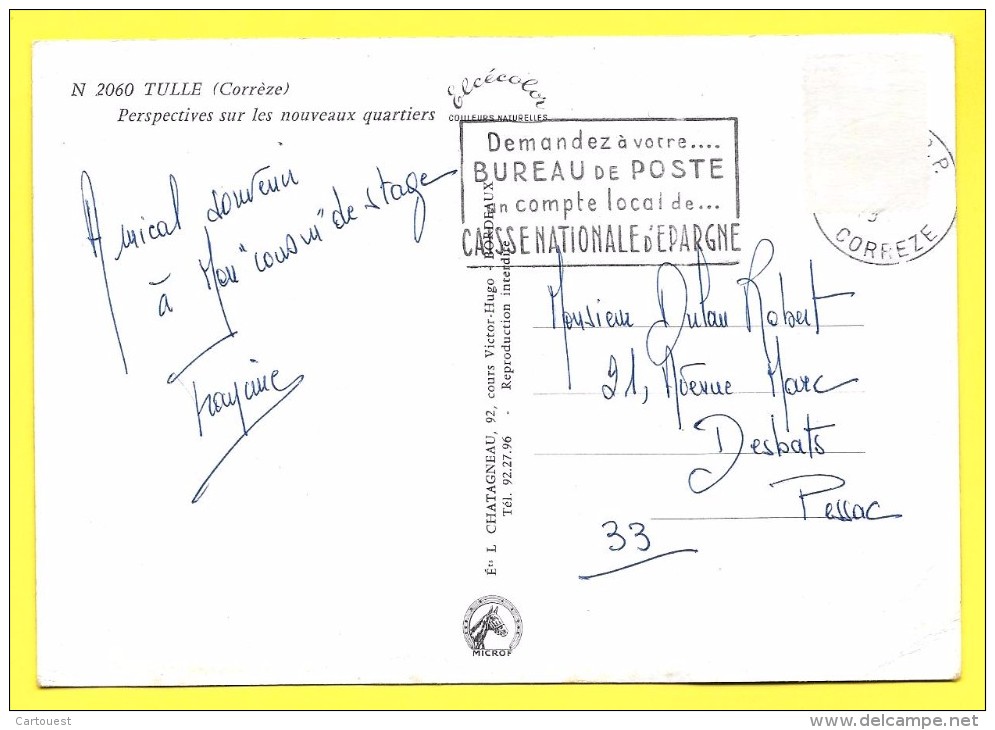 N 2060 TULLE (Corrèze)
Perspectives sur les nouveaux quartiers
Elcécolor
COULEURS NATURELLES
Demandez à votre....
BUREAU DE POSTE
un compte local de...
CAISSE NATIONALE D'EPARGNE
R.P.
CORREZE
Amical souvenir
à Mon "cousin" de stage
Francine
Monsieur Dulau Robert
21, Avenue Marc
Desbats
Pessac
33
Éts L CHATAGNEAU, 92, cours Victor-Hugo - BORDEAUX
Tél. 92.27.96 - Reproduction interdite
MICROF
Cartouest
www.delcampe.net